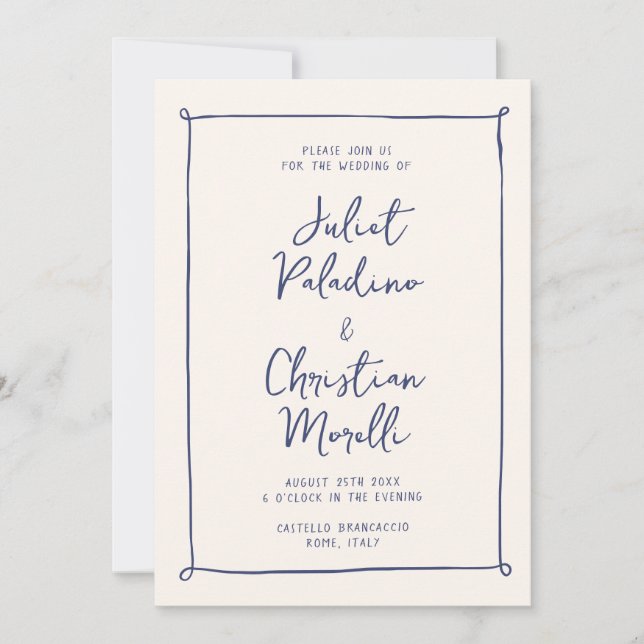 PLEASE JOIN US
FOR THE WEDDING OF
Juliet
Paladino
&
Christian
Morelli
AUGUST 25TH 20XX
6 O'CLOCK IN THE EVENING
CASTELLO BRANCACCIO
ROME, ITALY